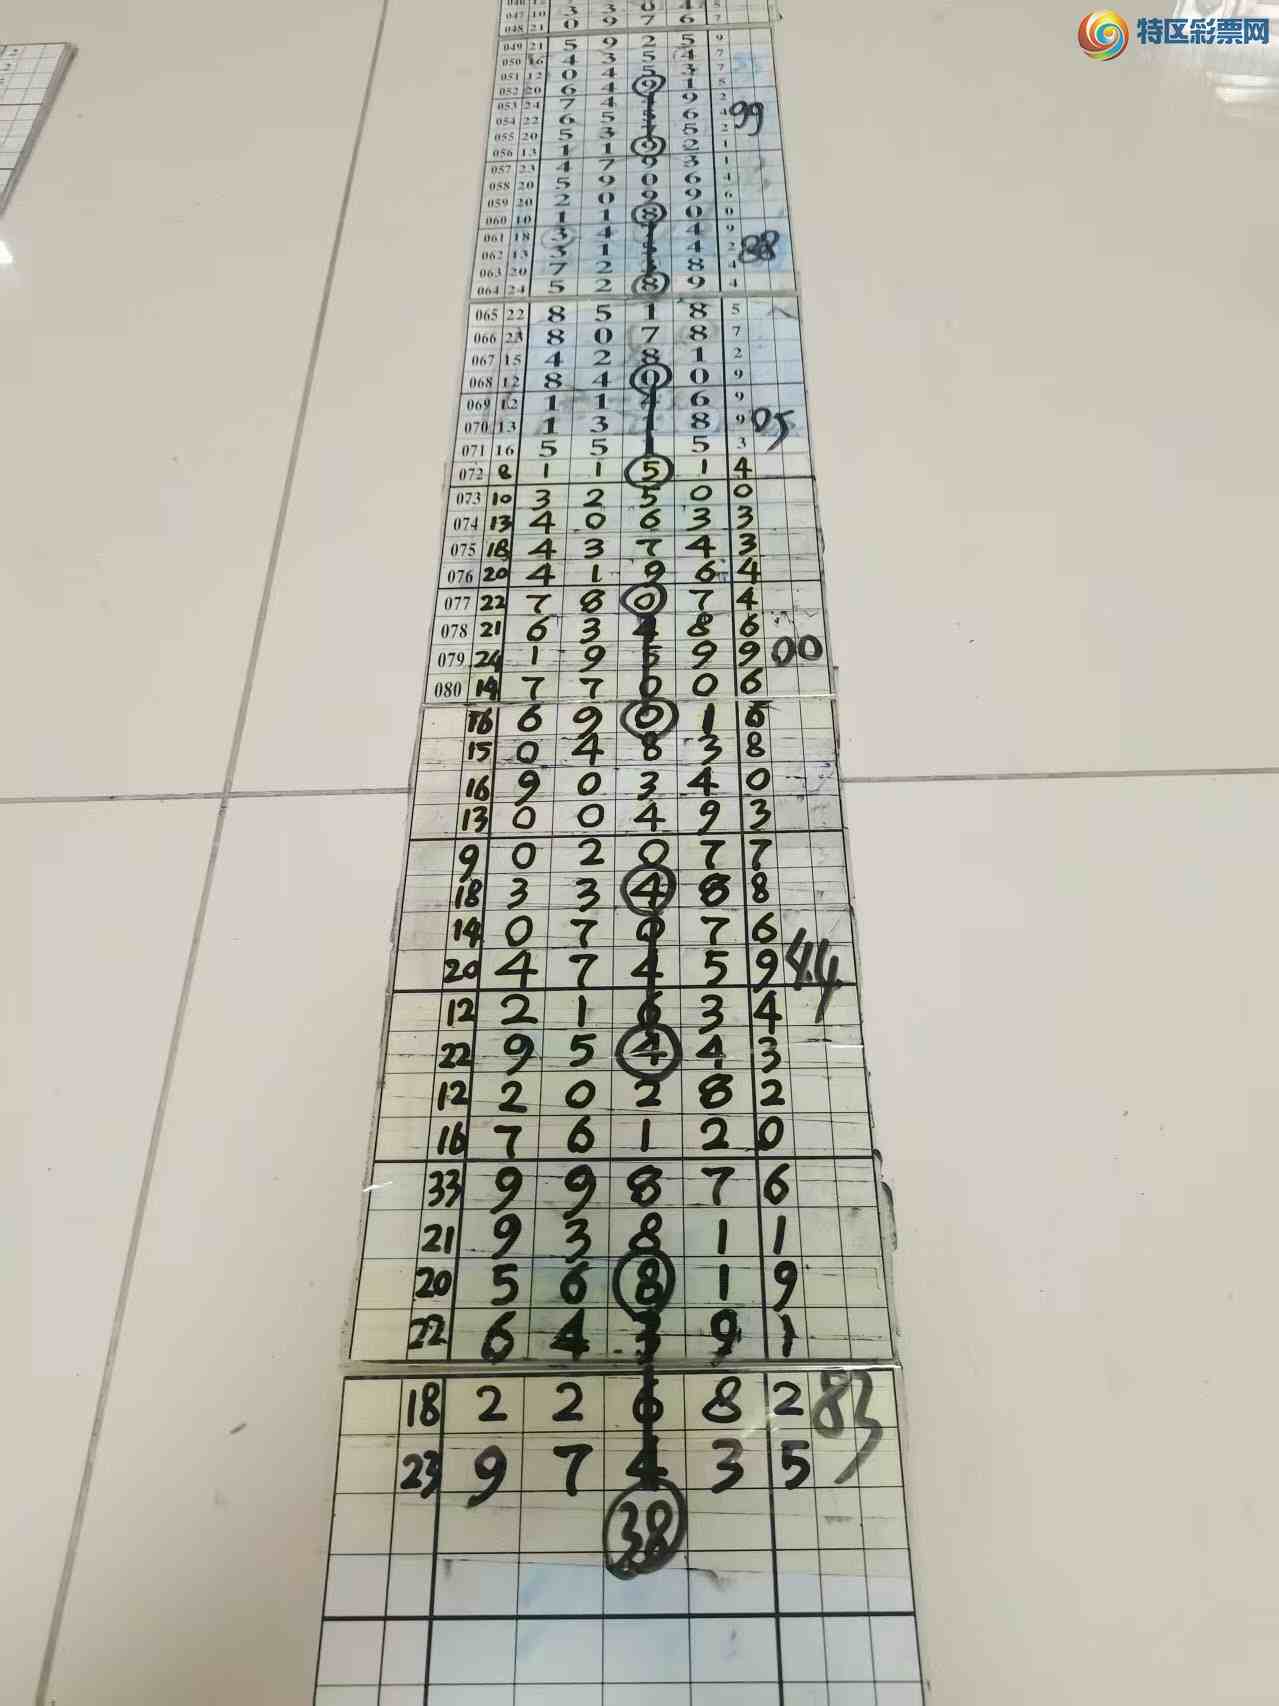 特区彩票网
047 10 3 3 0 4 5
048 21 0 9 7 6 7
049 21 5 9 2 5 9
050 16 4 3 5 4 7
051 12 0 4 5 3 7
052 20 6 4 9 1 5
053 24 7 4 9 2
054 22 6 5 6 4
99
055 20 5 3 5 2
056 13 1 1 9 2 1
057 23 4 7 9 3 1
058 20 5 9 0 6 4
059 20 2 0 9 9 6
060 10 1 1 8 0 0
061 18 3 4 4 9
062 13 3 1 4 2
88
063 20 7 2 8 4
064 24 5 2 8 9 4
065 22 8 5 1 8 5
066 23 8 0 7 8 7
067 15 4 2 8 1 2
068 12 8 4 0 0 9
069 12 1 1 4 6 9
070 13 1 3 1 8 9
05
071 16 5 5 1 5 3
072 8 1 1 5 1 4
073 10 3 2 5 0 0
074 13 4 0 6 3 3
075 18 4 3 7 4 3
076 20 4 1 9 6 4
077 22 7 8 0 7 4
078 21 6 3 4 8 6
079 24 1 9 5 9 9 00
080 14 7 7 0 0 6
16 6 9 0 1 6
15 0 4 8 3 8
16 9 0 3 4 0
13 0 0 4 9 3
9 0 2 0 7 7
18 3 3 4 8 8
14 0 7 0 7 6
20 4 7 4 5 9 44
12 2 1 6 3 4
22 9 5 4 4 3
12 2 0 2 8 2
16 7 6 1 2 0
33 9 9 8 7 6
21 9 3 8 1 1
20 5 6 8 1 9
22 6 4 3 9 1
18 2 2 6 8 2 83
23 9 7 4 3 5
38